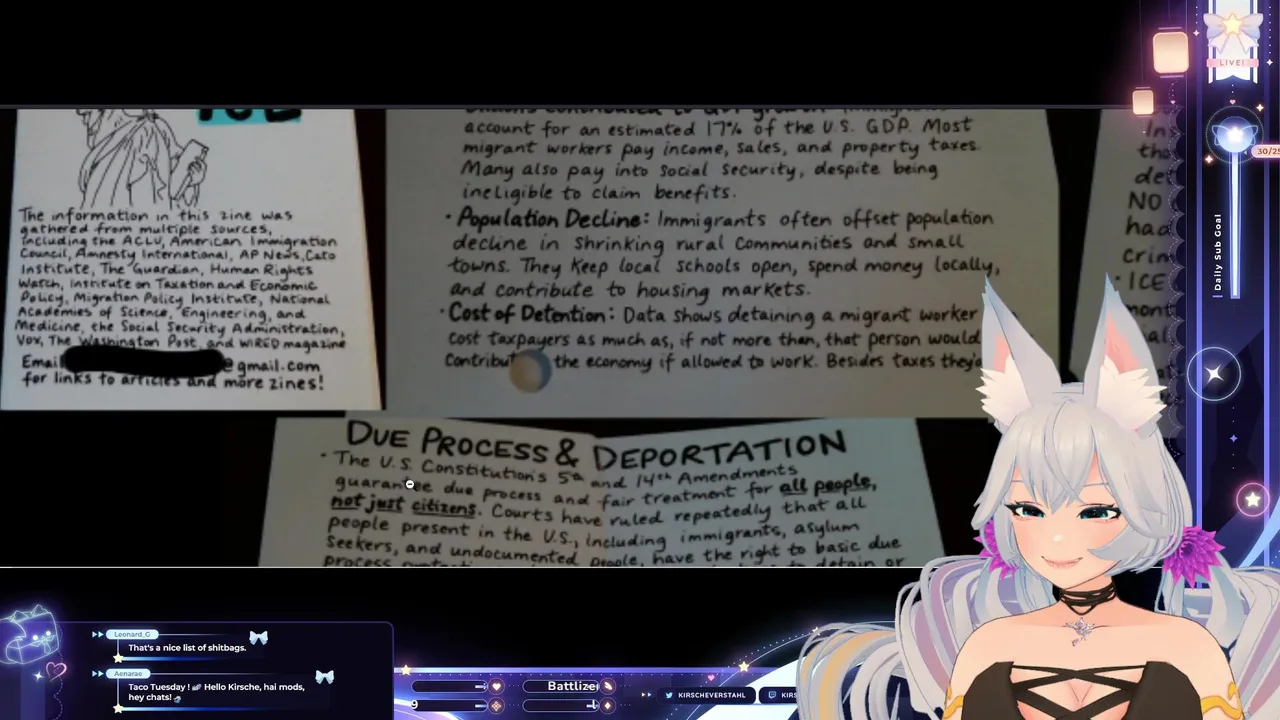 LIVE!
30/25
Daily Sub Goal
ICE
The information in this zine was
gathered from multiple sources,
including the ACLU, American Immigration
Council, Amnesty International, AP News, Cato
Institute, The Guardian, Human Rights
Watch, Institute on Taxation and Economic
Policy, Migration Policy Institute, National
Academies of Science, Engineering, and
Medicine, the Social Security Administration,
Vox, The Washington Post, and WIRED magazine
Email @gmail.com
for links to articles and more zines!
account for an estimated 17% of the U.S. GDP. Most
migrant workers pay income, sales, and property taxes.
Many also pay into social security, despite being
ineligible to claim benefits.
• Population Decline: Immigrants often offset population
decline in shrinking rural communities and small
towns. They keep local schools open, spend money locally,
and contribute to housing markets.
• Cost of Detention: Data shows detaining a migrant worker
cost taxpayers as much as, if not more than, that person would
contribut the economy if allowed to work. Besides taxes they'd
NO
had
• ICE
DUE PROCESS & DEPORTATION
• The U.S. Constitution's 5th and 14th Amendments
guarantee due process and fair treatment for all people,
not just citizens. Courts have ruled repeatedly that all
people present in the U.S., including immigrants, asylum
seekers, and undocumented people, have the right to basic due
Leonard_G
That's a nice list of shitbags.
Aenarae
Taco Tuesday ! Hello Kirsche, hai mods,
hey chats!
Battlize
9
KIRSCHEVERSTAHL
KIRS